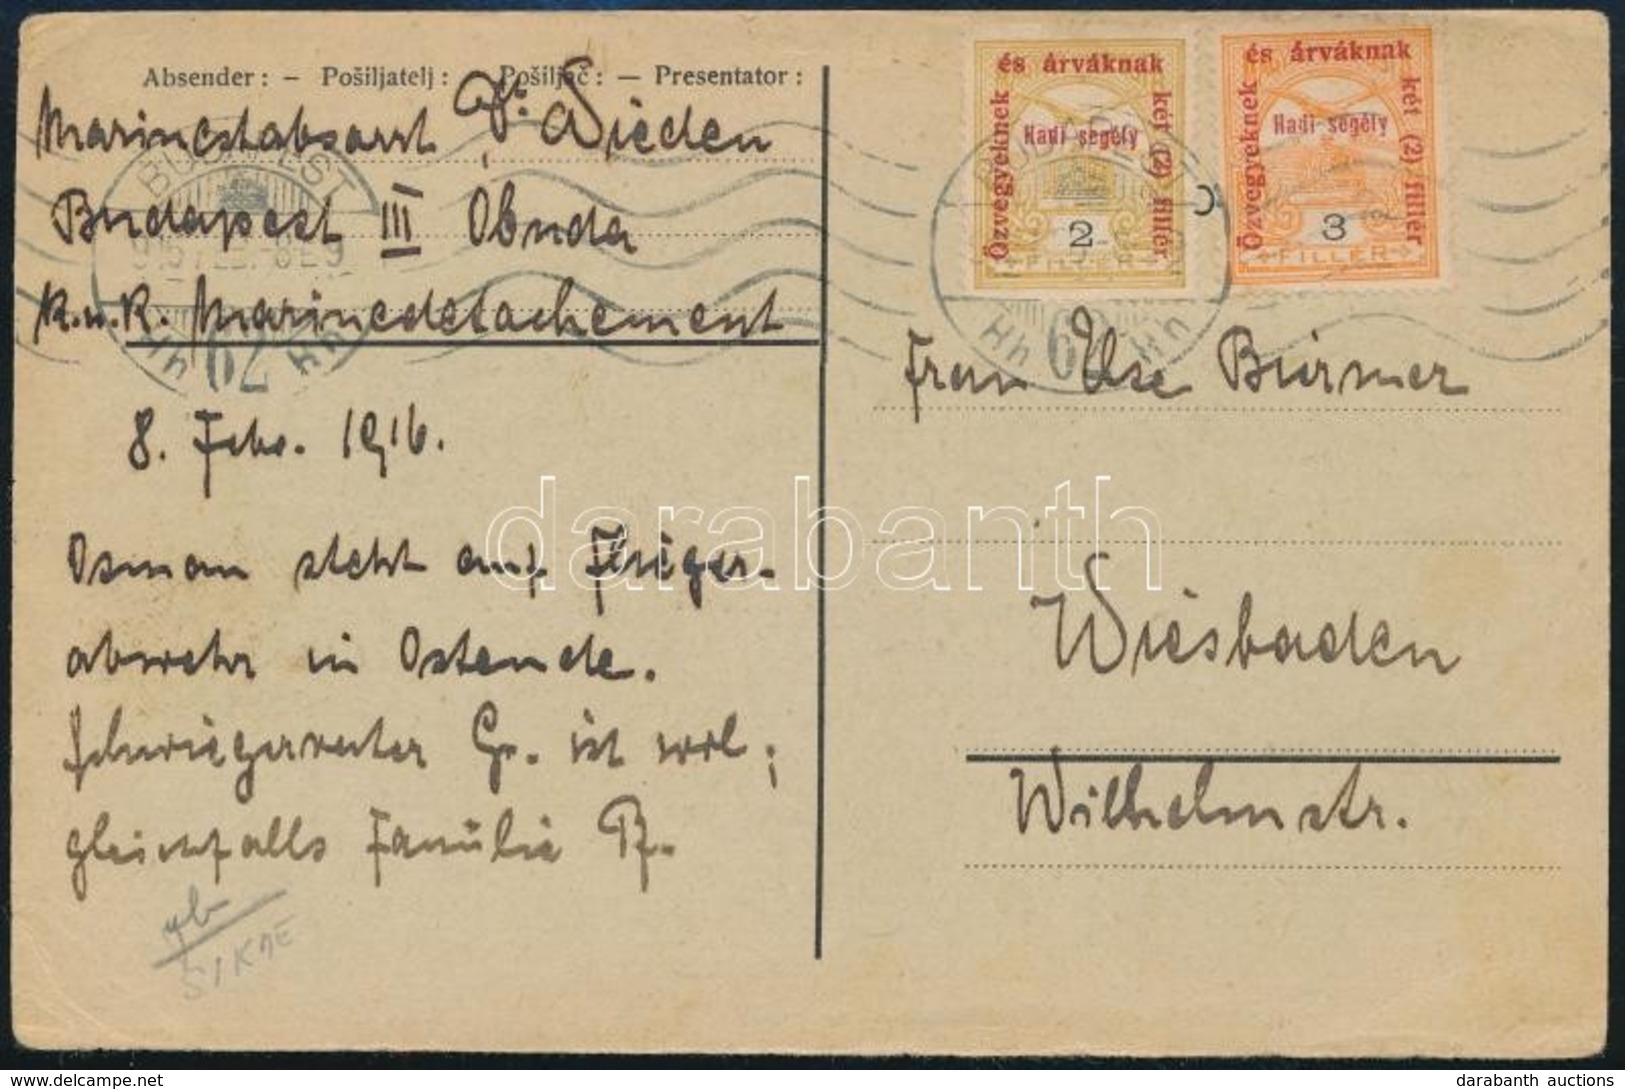 Absender: – Pošiljatelj: Pošiljač: — Presentator:
Marinestabsarzt Dr. Dieden
Budapest III Obuda
K.u.K. Marinedetachement
8. Febr. 1916.
Osman steht auf Flieger-
abwehr in Ostende.
Schwiegervater Gr. ist wol;
gleichfalls Familie B.
SIKAE
BUDAPEST
62
Hh Hh
BUDAPEST
62
Hh Hh
és árváknak
Özvegyeknek
Hadi segély
két (2) fillér
2
FILLÉR
és árváknak
Özvegyeknek
Hadi segély
két (2) fillér
3
FILLÉR
Frau Else Biermer
Wiesbaden
Wilhelmstr.
darabanth
darabanth auctions
www.delcampe.net